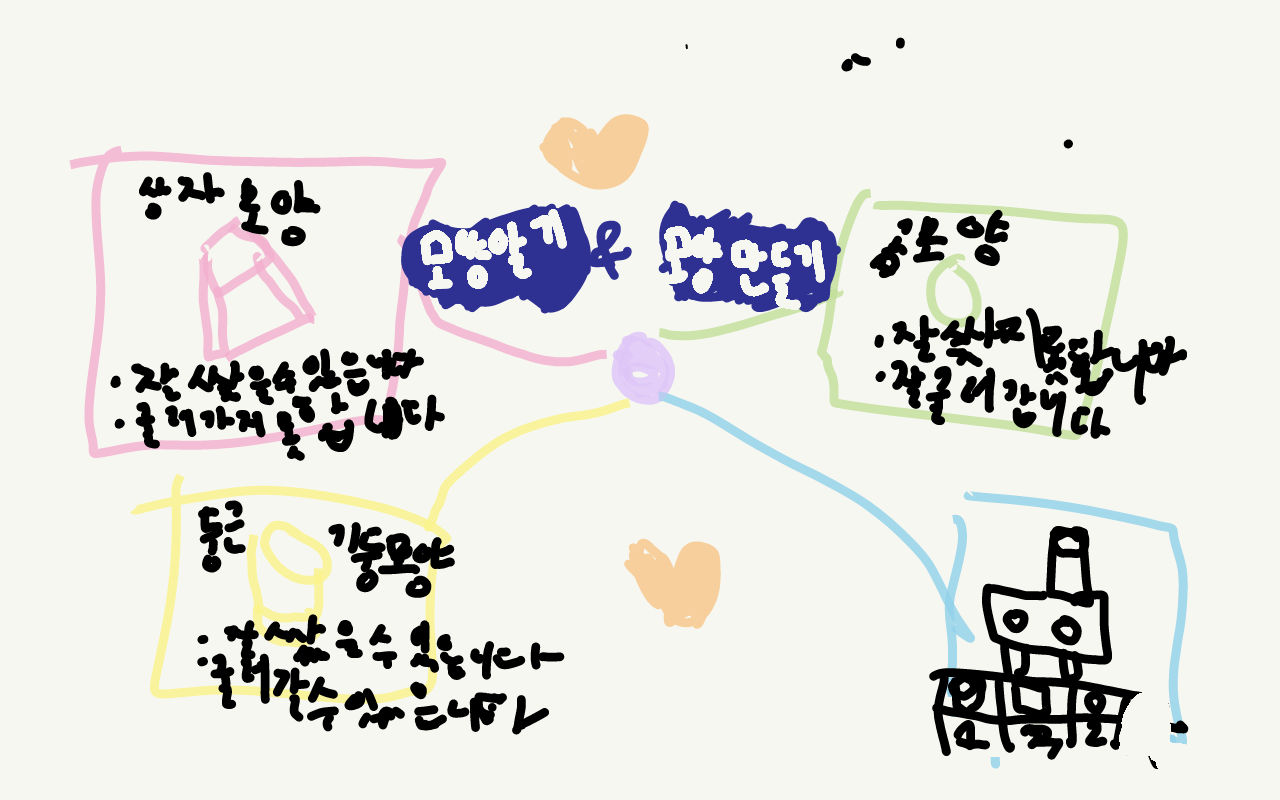 모양알기 & 모양만들기
상자 모양
· 잘 쌓을 수 있습니다
· 굴러가지 못합니다
공 모양
· 잘 쌓지 못합니다
· 잘 굴러 갑니다
둥근 기둥모양
· 잘 쌓을 수 있습니다
· 굴러갈 수 있습니다